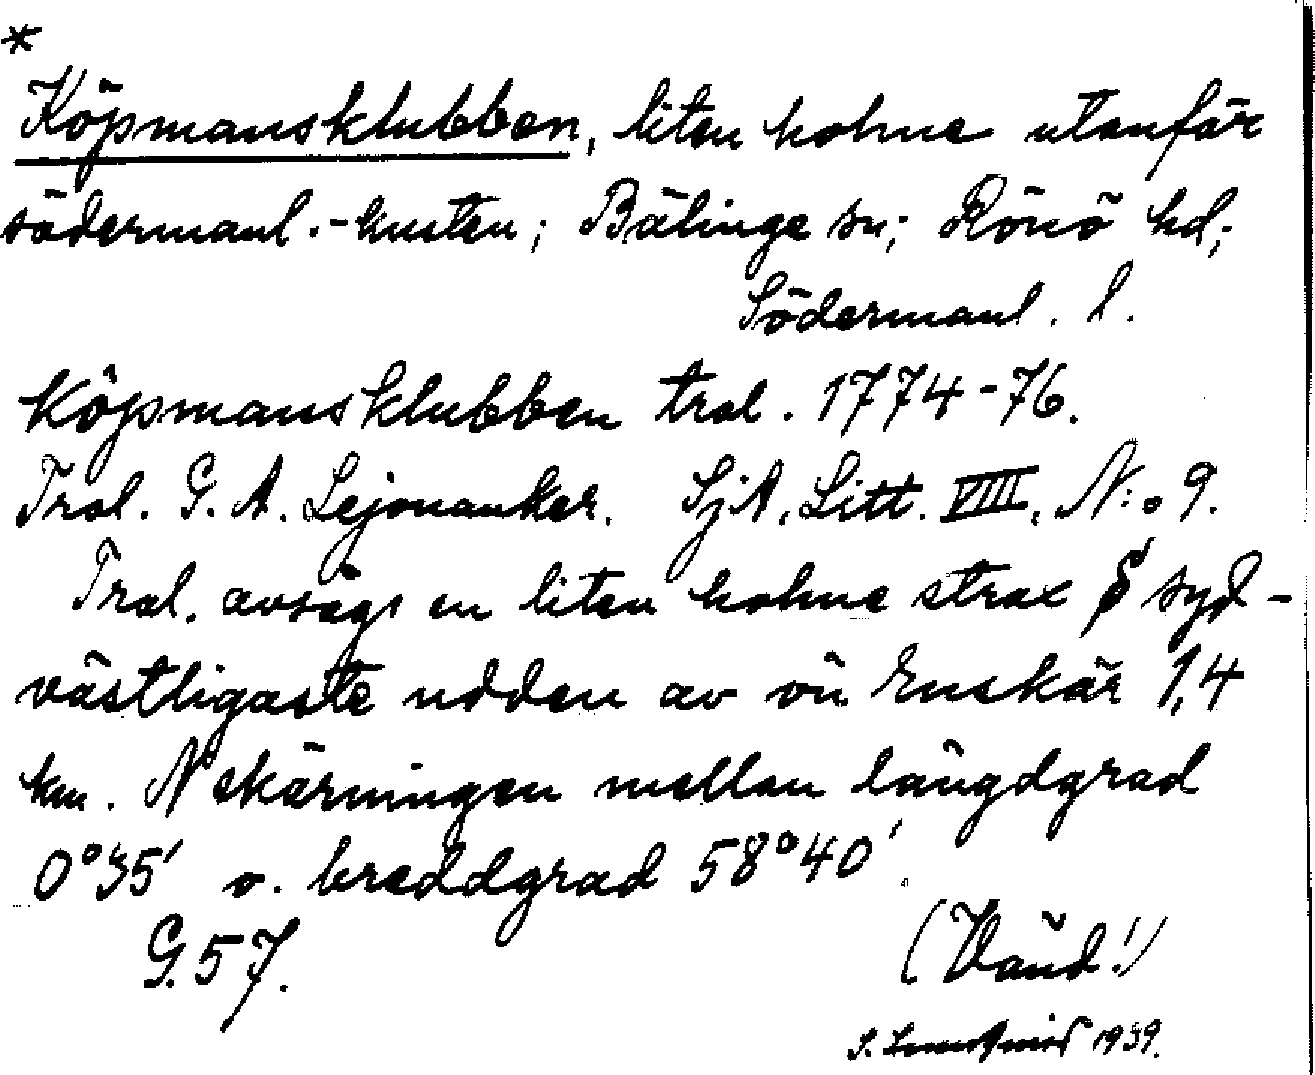 *
Köpmansklubben, liten holme utanför
södermanl.-kusten; Bälinge sn; Rönö hd;
Södermanl. l.
Köpmansklubben tral. 1774-76.
Tral. G. A. Lejonanker. SjA, Litt. VIIII, N:o 9.
Tral. avsågs en liten holme strax S syd-
västligaste udden av ön Enskär 1,4
km. N skärningen mellan längdgrad
0°35' o. breddgrad 58°40'.
G. 57.
(Vänd!)
1939.